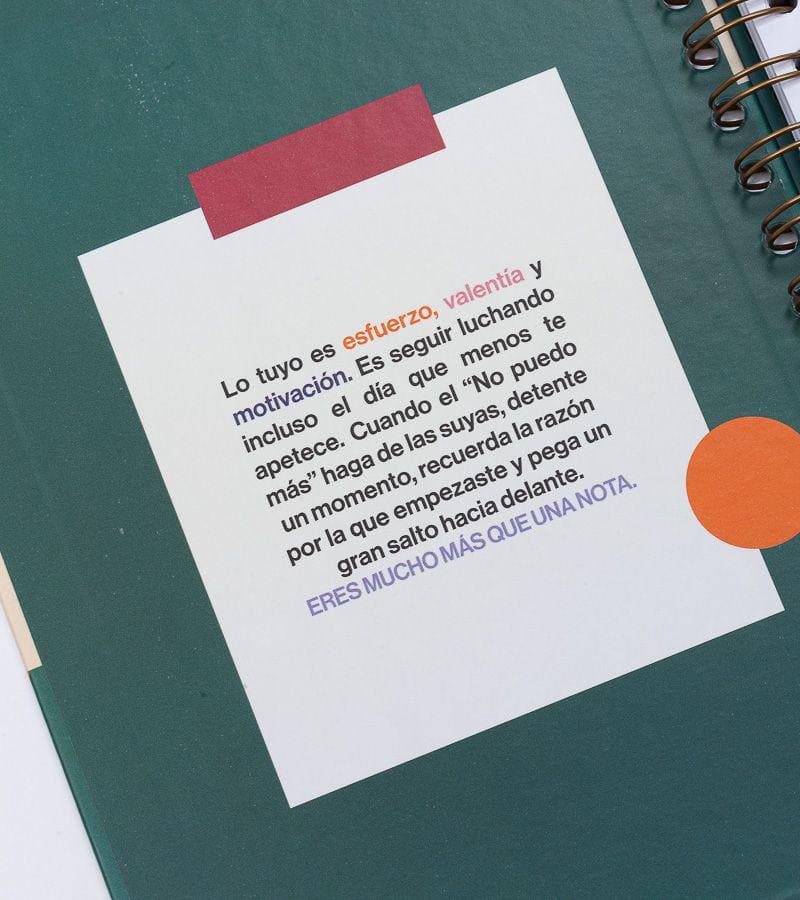 Lo tuyo es esfuerzo, valentía y
motivación. Es seguir luchando
incluso el día que menos te
apetece. Cuando el “No puedo
más” haga de las suyas, detente
un momento, recuerda la razón
por la que empezaste y pega un
gran salto hacia delante.
ERES MUCHO MÁS QUE UNA NOTA.